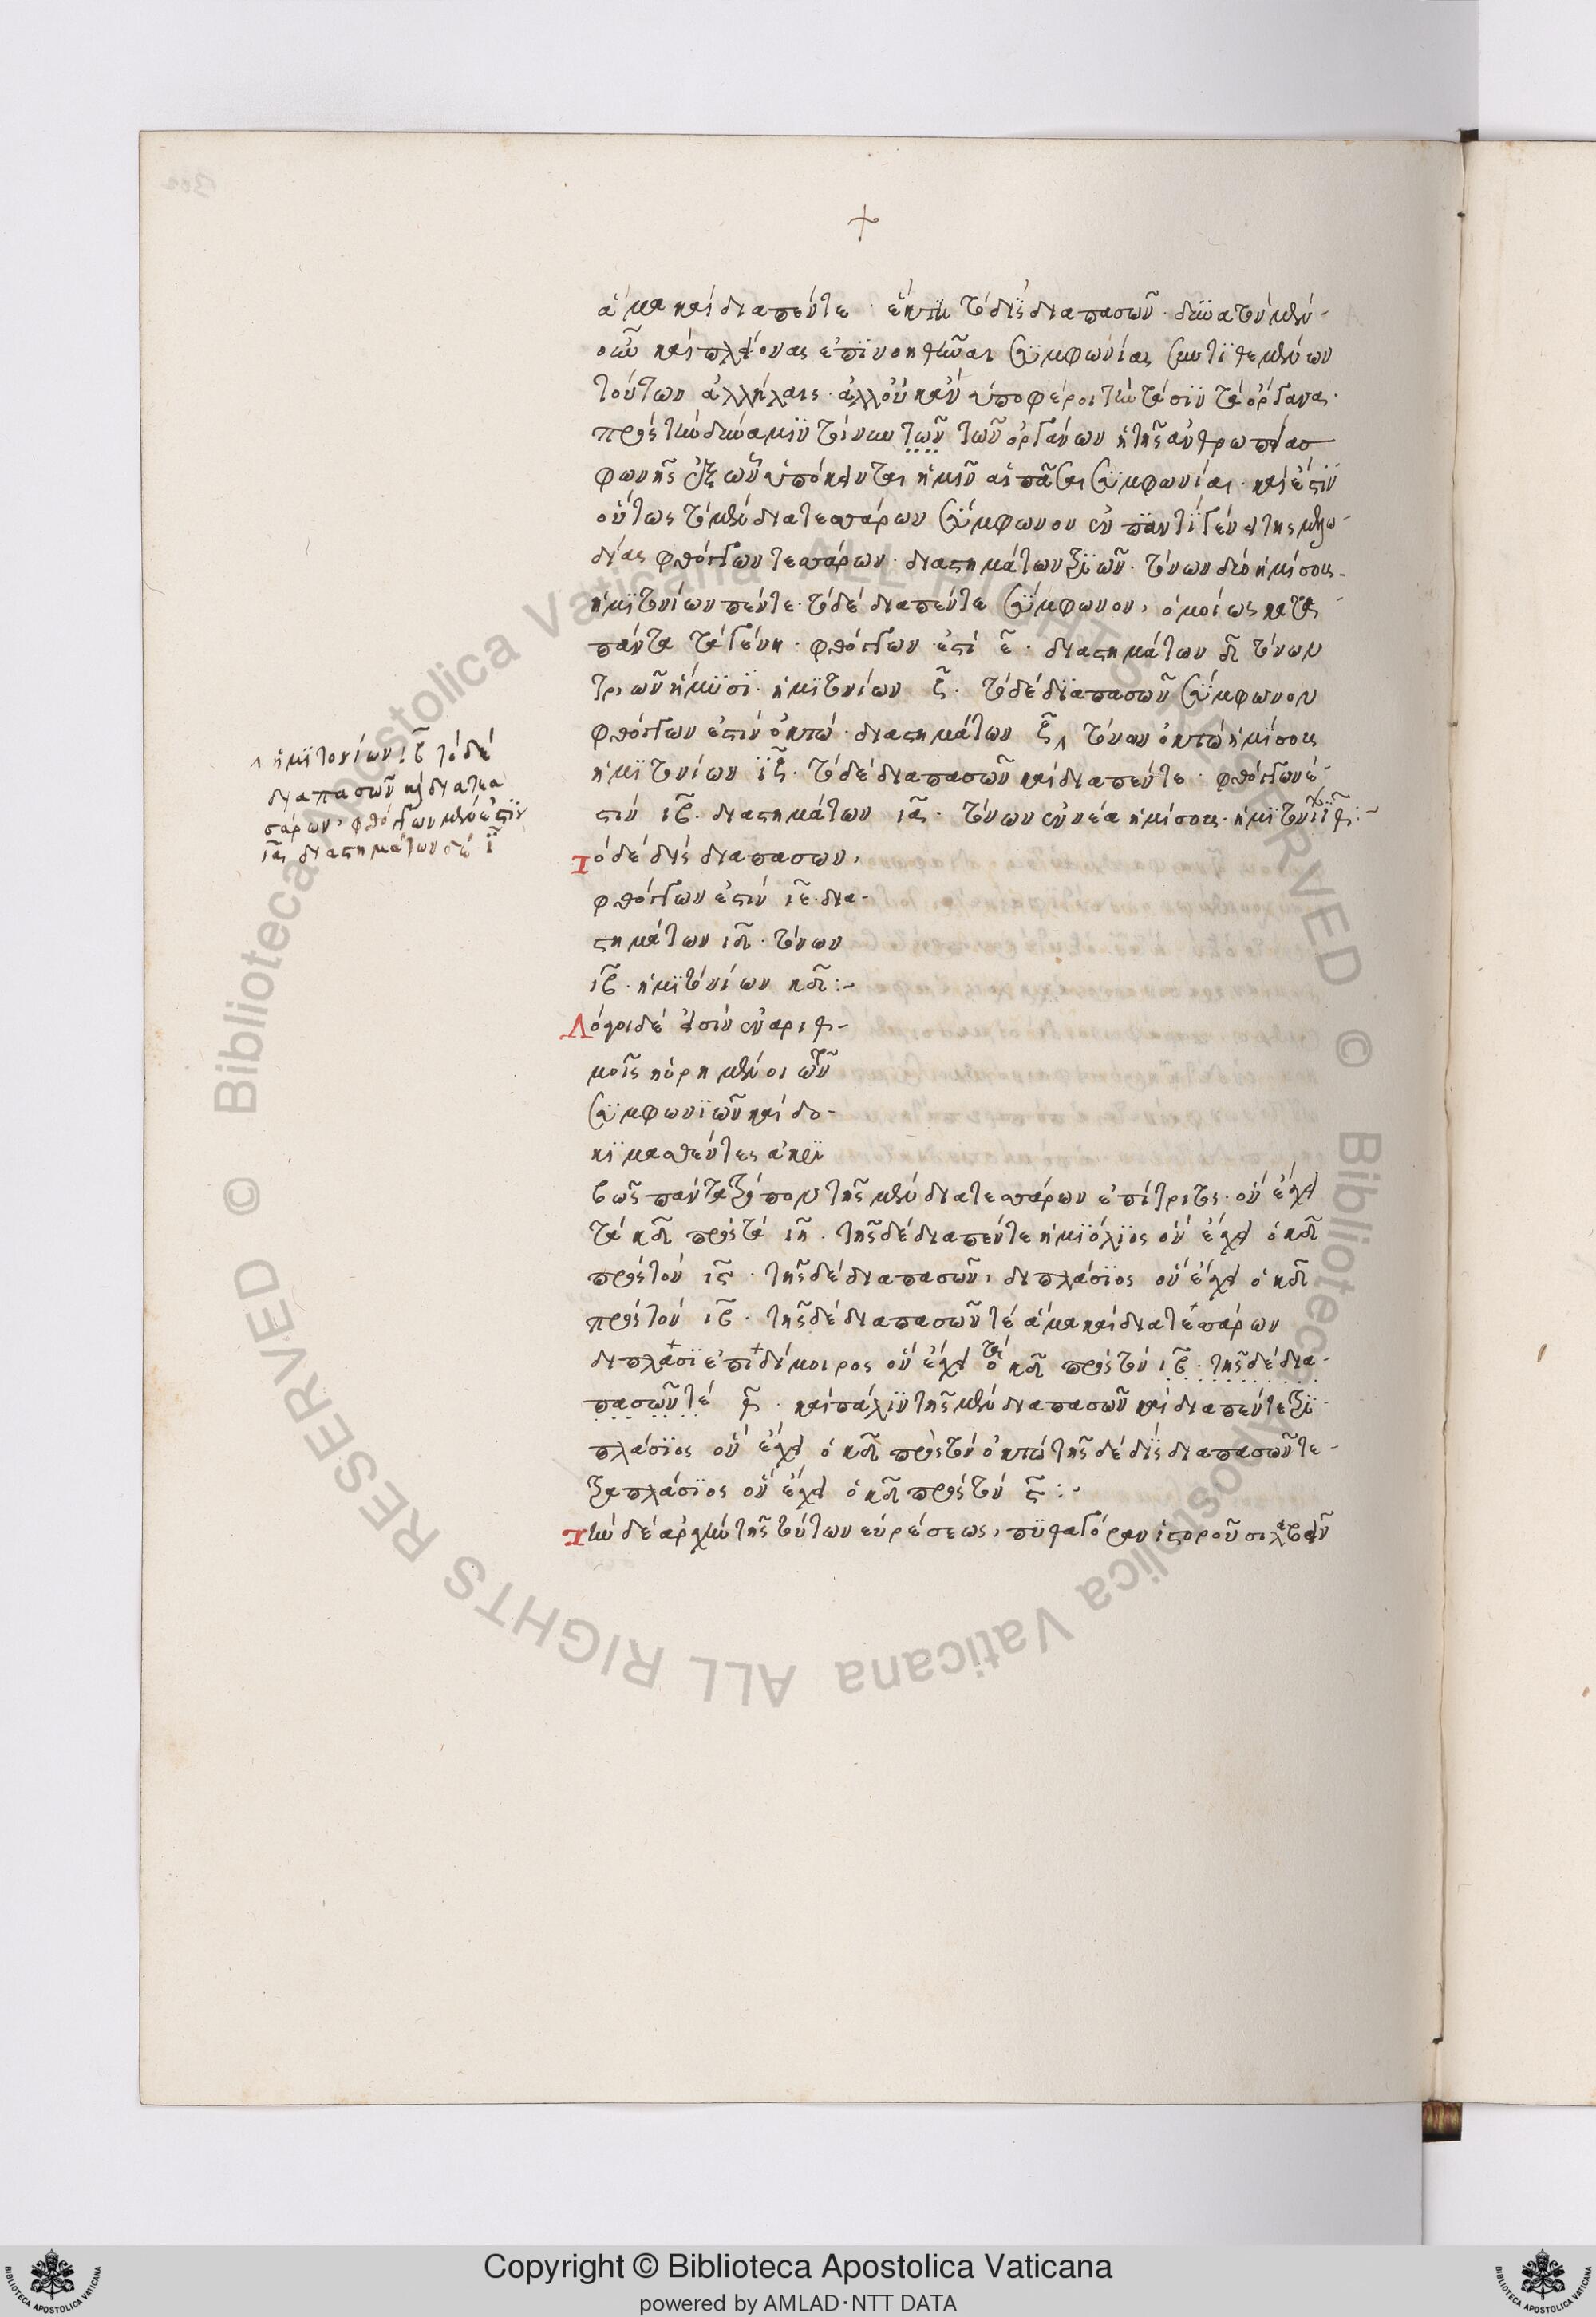 ἅμα καὶ διαπέντε · ἕκτη τὸ δὶς διαπασῶν · δυνατὸν μὲν
οὖν καὶ πλείονας ἐπινοηθῆναι συμφωνίας συντιθεμένων
τούτων ἀλλήλαις · ἀλλ' οὐκ ἂν ὑποφέροι τὴν τάσιν τὰ ὄργανα ·
πρὸς τὴν δύναμιν τῶν τῶν ὀργάνων ἢ τῆς ἀνθρωπείας
φωνῆς ἐξ ὧν ὑπόκεινται ἡμῖν αἱ πᾶσαι συμφωνίαι · καὶ ἔστιν
οὕτως τὸ μὲν διατεσσάρων σύμφωνον ἐν παντὶ γένει τῆς μελω-
δίας φθόγγων τεσσάρων · διαστημάτων τριῶν · τόνων δύο ἡμίσους -
ἡμιτονίων πέντε · τὸ δὲ διαπέντε σύμφωνον, ὁμοίως κατὰ
πάντα τὰ γένη · φθόγγων ἐστὶ ε̄ · διαστημάτων δ̄ τόνων
τριῶν ἥμισι · ἡμιτονίων ζ̄ · τὸ δὲ διαπασῶν σύμφωνον
φθόγγων ἐστὶν ὀκτώ · διαστημάτων ζ̄ ˄ τόνων ὀκτὼ ἡμίσους
ἡμιτονίων ιζ̄ · τὸ δὲ διαπασῶν καὶ διαπέντε · φθόγγων ἐ-
στὶν ιβ̄ · διαστημάτων ια̅ · τόνων ἐννέα ἡμίσους · ἡμιτονίων ιθ̅ :~
˄ ἡμιτονίων ιβ̄ τὸ δὲ
διαπασῶν καὶ διατεσ
σάρων, φθόγγων μὲν ἐστὶν
ια̅ διαστημάτων δὲ ῑ
Τὸ δὲ δὶς διαπασων,
φθόγγων ἐστὶν ιε̄ · δια-
στημάτων ιδ̄ · τόνων
ιβ̄ · ἡμιτόνίων κδ̄ :~
Λόγοι δέ εἰσὶν ἐν ἀριθ-
μοῖς ηὑρημένοι τῶν
συμφωνιῶν καὶ δο-
κιμασθέντες ἀκρι
βῶς πάντα τρόπον τῆς μὲν διατεσσάρων ἐπίτριτος · ὃν ἔχει
τὰ κδ̄ πρὸς τὰ ιη̄ · τῆς δὲ διαπέντε ἡμιόλιος ὃν ἔχει ὁ κδ̄
πρὸς τὸν ις̄ · τῆς δὲ διαπασῶν, διπλάσιος ὃν ἔχει ὁ κδ̄
πρὸς τὸν ιβ̄ · τῆς δὲ διαπασῶν τὲ ἅμα καὶ διατεσσάρων
διπλασιεπιδίμοιρος ὃν ἔχει ὁ κδ̄ πρὸς τὸν ιβ̄ · τῆς δὲ δια-
πασῶν τὲ θ̄ · καὶ πάλιν τῆς μὲν διαπασῶν καὶ διαπέντε τρι
πλάσιος ὃν ἔχει ὁ κδ̄ πρὸς τὸν ὀκτὼ τῆς δὲ δὶς διαπασῶν τε-
τραπλάσιος ὃν ἔχει ὁ κδ̄ πρὸς τὸν ς̄ :~
Τὴν δὲ ἀρχὴν τῆς τούτων εὑρέσεως, πυθαγόραν ἱστοροῦσι λαβεῖν
Copyright © Biblioteca Apostolica Vaticana
powered by AMLAD·NTT DATA